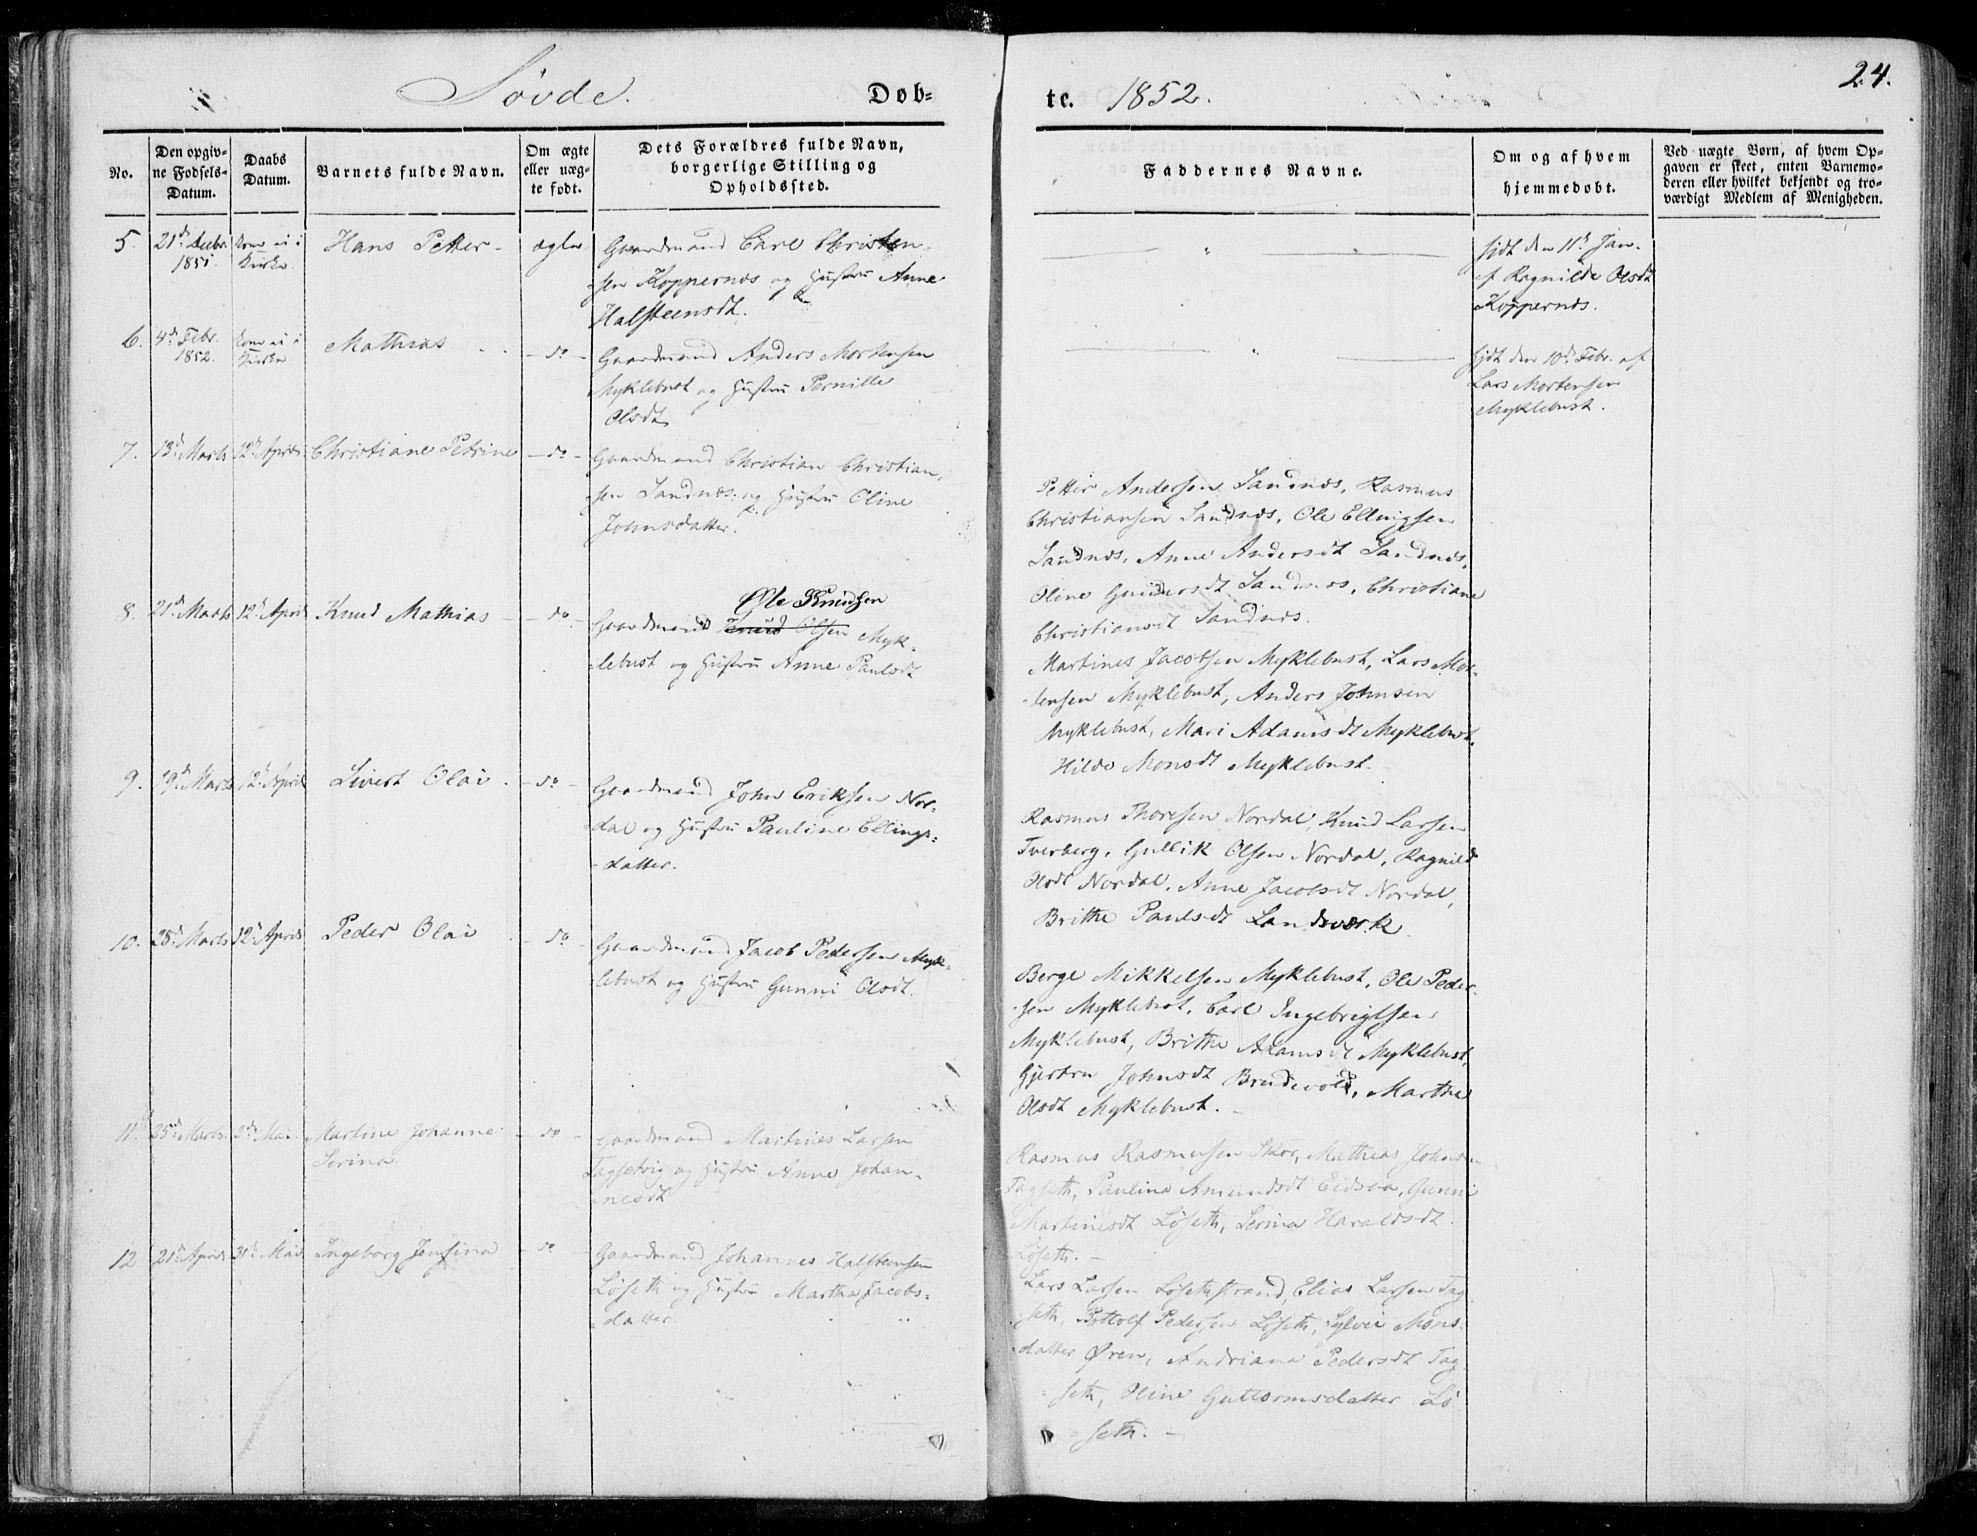 Søvde. Døb-
te. 1852.
24.
No.
Den opgiv-
ne Fødsels-
Datum.
Daabs
Datum.
Barnets fulde Navn.
Om ægte
eller uæg-
te født.
Dets Forældres fulde Navn,
borgerlige Stilling og
Opholdssted.
Faddernes Navne.
Om og af hvem
hjemmedøbt.
Ved uægte Børn, af hvem Op-
gaven er skeet, enten Barnemo-
deren eller hvilket bekjendt og tro-
værdigt Medlem af Menigheden.
5. 21de Decbr. 1851. Kom ei i Kirke. Hans Petter - ægte
Gaardmand Carl Christen-
sen Koppernæs og Hustru Anne
Halsteensdt.
hjdt den 11te Jan.
af Ragnilde Olsdt
Koppernæs.
6. 4de Febr. 1852. Kom ei i Kirke Mathias - do -
Gaardmand Anders Mortensen
Myklebust og Hustru Pernille
Olsdt
hjdt den 10de Febr. af
Lars Mortensen
Myklebust.
7. 13de Marts 12te April Christiane Petrine - do -
Gaardmand Christian Christian-
sen Sandnæs og Hustru Oline
Johnsdatter.
Petter Andersen Sandnæs, Rasmus
Christiansen Sandnæs, Ole Ellingsen
Sandnæs, Anne Andersdt Sandnæs,
Oline Gundersdt Sandnæs, Christiane
Christiansdt Sandnæs.
8. 21de Marts 12te April Knud Mathias - do -
Ole Knudsen
Gaardmand Knud Olsen Myk-
lebust og Hustru Anne Paulsdt
Martines Jacobsen Myklebust, Lars Mor-
tensen Myklebust, Anders Johnsen
Myklebust, Mari Adamsdt Myklebust,
Hilde Monsdt Myklebust.
9. 19de Marts 12te April Sivert Olai. - do -
Gaardmand John Eriksen Nor-
dal og Hustru Pauline Ellings-
datter.
Rasmus Thoresen Nordal, Knud Larsen
Tverberg, Gullik Olsen Nordal, Ragnild
Olsdt Nordal, Anne Jacobsdt Nordal,
Brithe Paulsdt Landsværk
10. 28de Marts 12te April Peder Olai - do -
Gaardmand Jacob Pedersen Myk-
lebust og Hustru Gunni Olsdt.
Berge Mikkelsen Myklebust, Ole Peder-
sen Myklebust, Carl Ingebrigtsen
Myklebust, Brithe Adamsdt Myklebust,
Gjertru Johnsdt Brudevold, Marthe
Olsdt Myklebust. -
11. 25de Marts. Mai Martine Johanne - do -
Serina
Gaardmand Martines Larsen
og Hustru Anne Johan-
nesdt
Rasmus Rasmusen Skor, Mathias Johns-
Tagseth, Paulina Amundsdt Eidsaa, Gunni
Martinesdt Løseth, Serina Haraldsdt
Løseth. -
12 21de April 31te Mai Ingeborg Jensina - do -
Gaardmand Johannes Halsteensen
Løseth og Hustru Martha Jacobs-
datter.
Lars Larsen Løsethstrand, Elias Larsen Tag-
seth, Bottolf Pedersen Løseth, Sylvei Mons-
datter Øren, Andriana Pedersdt Tag
seth, Oline Guttormsdatter Lø
seth. -